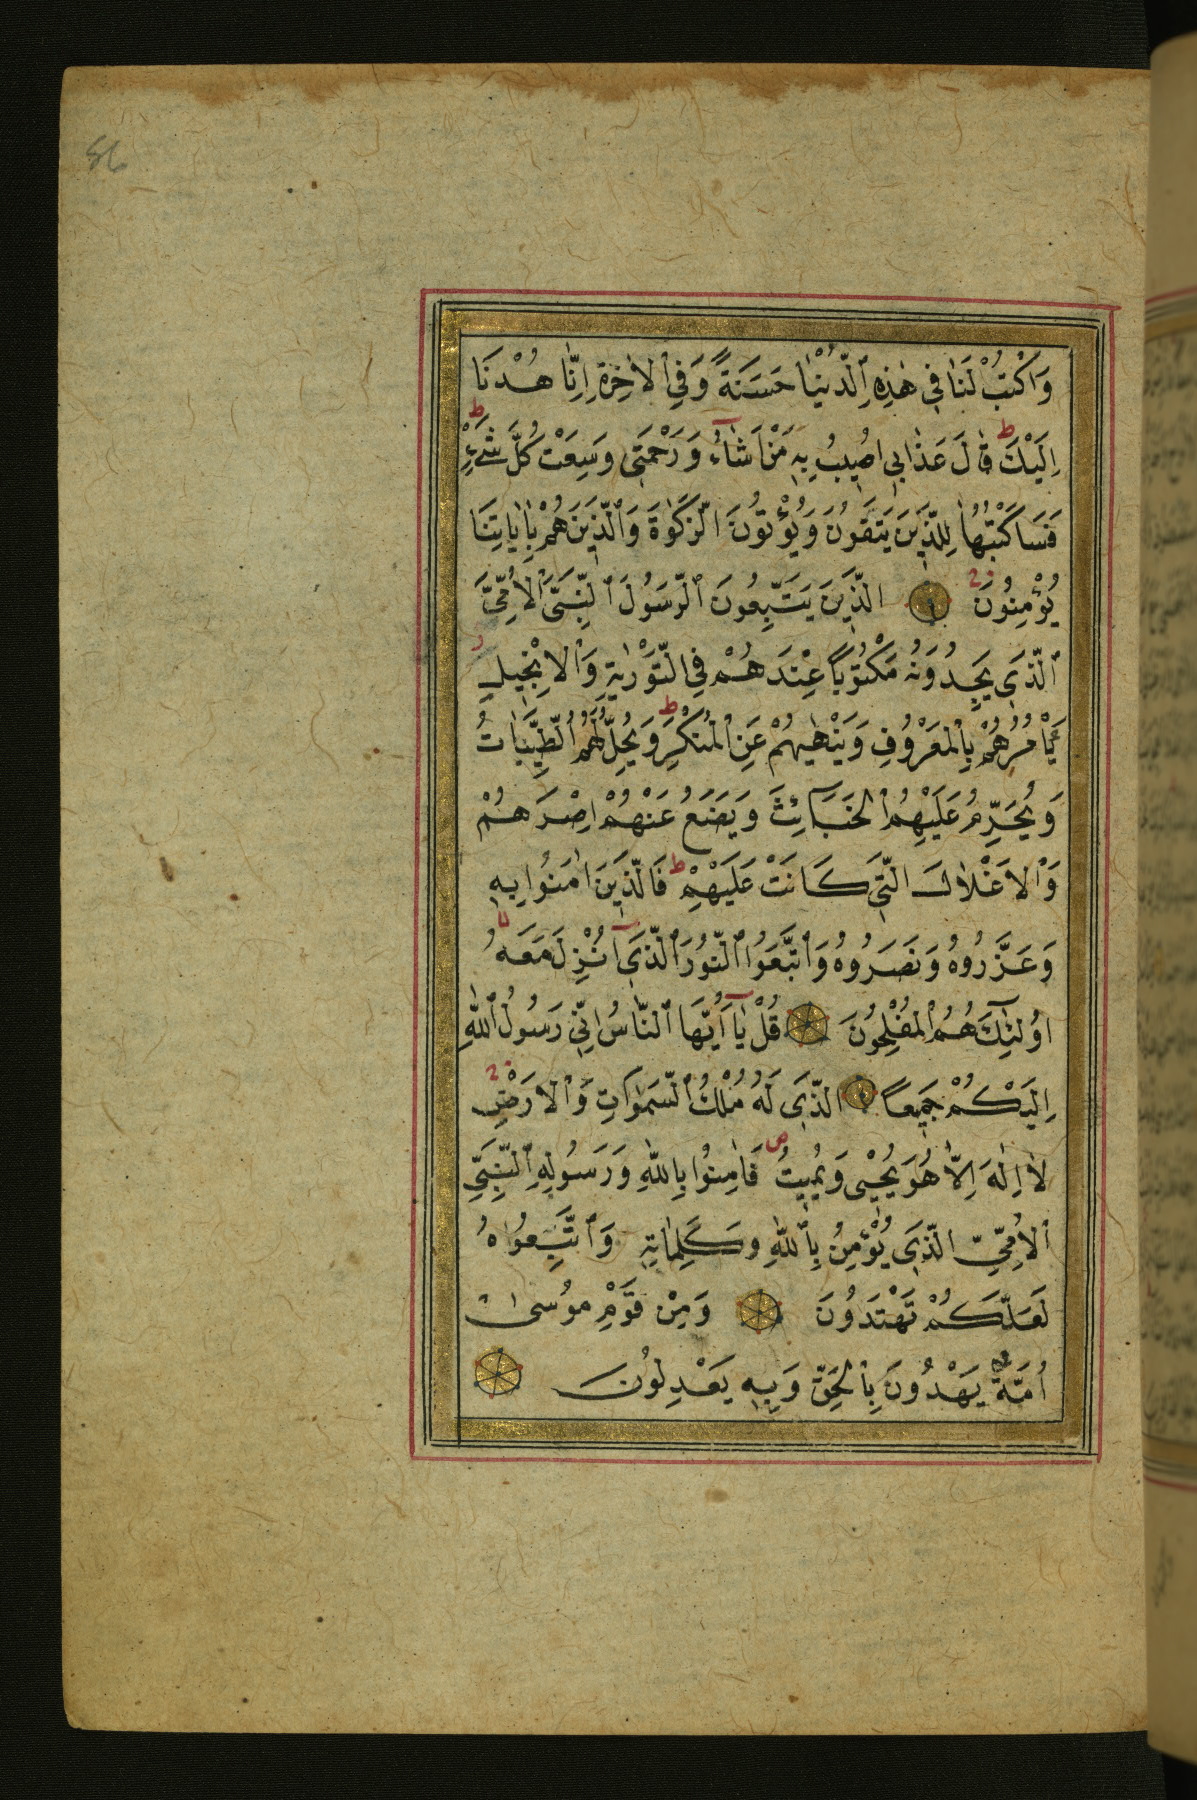 86
وَاكْتُبْ لَنَا فِي هٰذِهِ ٱلدُّنْيَا حَسَنَةً وَفِي ٱلْاٰخِرَةِ اِنَّا هُدْنَا
اِلَيْكَ ط قَالَ عَذَابِي اُصِيبُ بِهِ مَنْ اَشَاءُ وَرَحْمَتِي وَسِعَتْ كُلَّ شَيْءٍ ط
فَسَاَكْتُبُهَا لِلَّذِينَ يَتَّقُونَ وَيُؤْتُونَ الزَّكٰوةَ وَٱلَّذِينَ هُمْ بِاٰيَاتِنَا
يُؤْمِنُونَ الَّذِينَ يَتَّبِعُونَ ٱلرَّسُولَ ٱلنَّبِيَّ ٱلْاُمِّيَّ
ٱلَّذِي يَجِدُونَهُ مَكْتُوباً عِنْدَهُمْ فِي التَّوْرٰيةِ وَٱلْاِنْجِيلِ
يَأْمُرُهُمْ بِٱلْمَعْرُوفِ وَيَنْهٰيهُمْ عَنِ ٱلْمُنْكَرِ ط وَيُحِلُّ لَهُمُ ٱلطَّيِّبَاتُ
وَيُحَرِّمُ عَلَيْهِمُ ٱلْخَبَآئِثَ وَيَضَعُ عَنْهُمْ اِصْرَهُمْ
وَٱلْاَغْلَالَ الَّتِي كَانَتْ عَلَيْهِمْ ط فَالَّذِينَ اٰمَنُوا بِهِ
وَعَزَّرُوهُ وَنَصَرُوهُ وَٱتَّبَعُوا ٱلنُّورَ ٱلَّذِي اُنْزِلَ مَعَهُ
اُولٰئِكَ هُمُ ٱلْمُفْلِحُونَ قُلْ يَآ اَيُّهَا ٱلنَّاسُ اِنِّي رَسُولُ ٱللّٰهِ
اِلَيْكُمْ جَمِيعاً الَّذِي لَهُ مُلْكُ ٱلسَّمٰوَاتِ وَٱلْاَرْضِ
لَا اِلٰهَ اِلَّا هُوَ يُحْيِي وَيُمِيتُ ص فَاٰمِنُوا بِاللّٰهِ وَرَسُولِهِ ٱلنَّبِيِّ
ٱلْاُمِّيِّ الَّذِي يُؤْمِنُ بِٱللّٰهِ وَكَلِمَاتِهِ وَٱتَّبِعُوهُ
لَعَلَّكُمْ تَهْتَدُونَ وَمِنْ قَوْمِ مُوسىٰ
اُمَّةٌ يَهْدُونَ بِٱلْحَقِّ وَبِهِ يَعْدِلُونَ